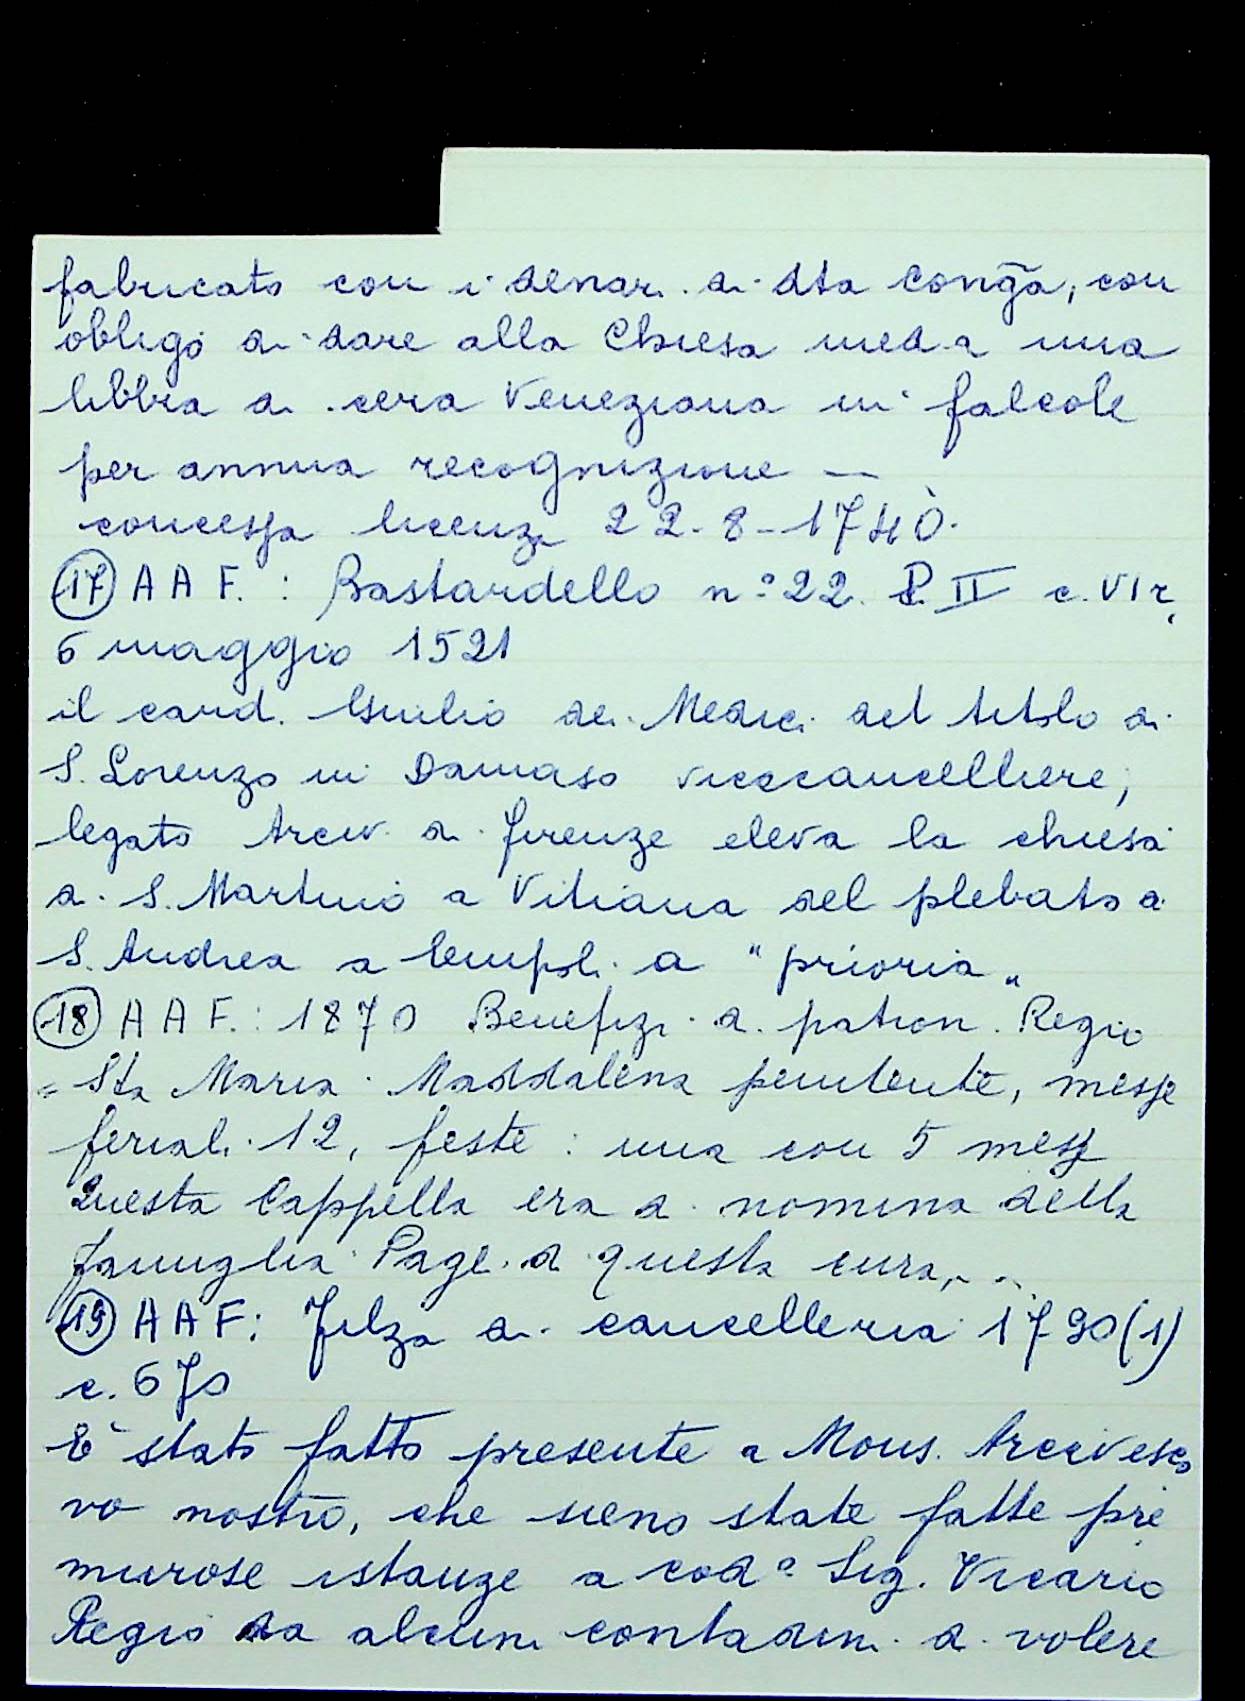 fabricato con i denari di dta Congã, con
obligo di dare alla Chiesa med.a una
libbra di cera Veneziana in falcole
per annua recognizione —
concessa licenza 22-8-1740.
(17) A A F. : Bastardello n° 22. P. II c. VI r,
6 maggio 1521
il card. Giulio dei Medici del titolo di
S. Lorenzo in Damaso vicecancelliere,
legato Arciv. di Firenze eleva la chiesa
di S. Martino a Vitiana del plebato di
S. Andrea a Empoli a "prioria"
(18) A A F. : 1870 Benefizi di patron. Regio
= Sta Maria Maddalena penitente, messe
feriali 12, feste : una con 5 messe
Questa Cappella era di nomina della
famiglia Pagli di questa cura, . .
(19) A A F : Filza di cancelleria 1790 (1)
c. 670
E' stato fatto presente a Mons. Arcivesco
vo nostro, che sieno state fatte pre
murose istanze a cod° Sig. Vicario
Regio da alcuni contadini di volere